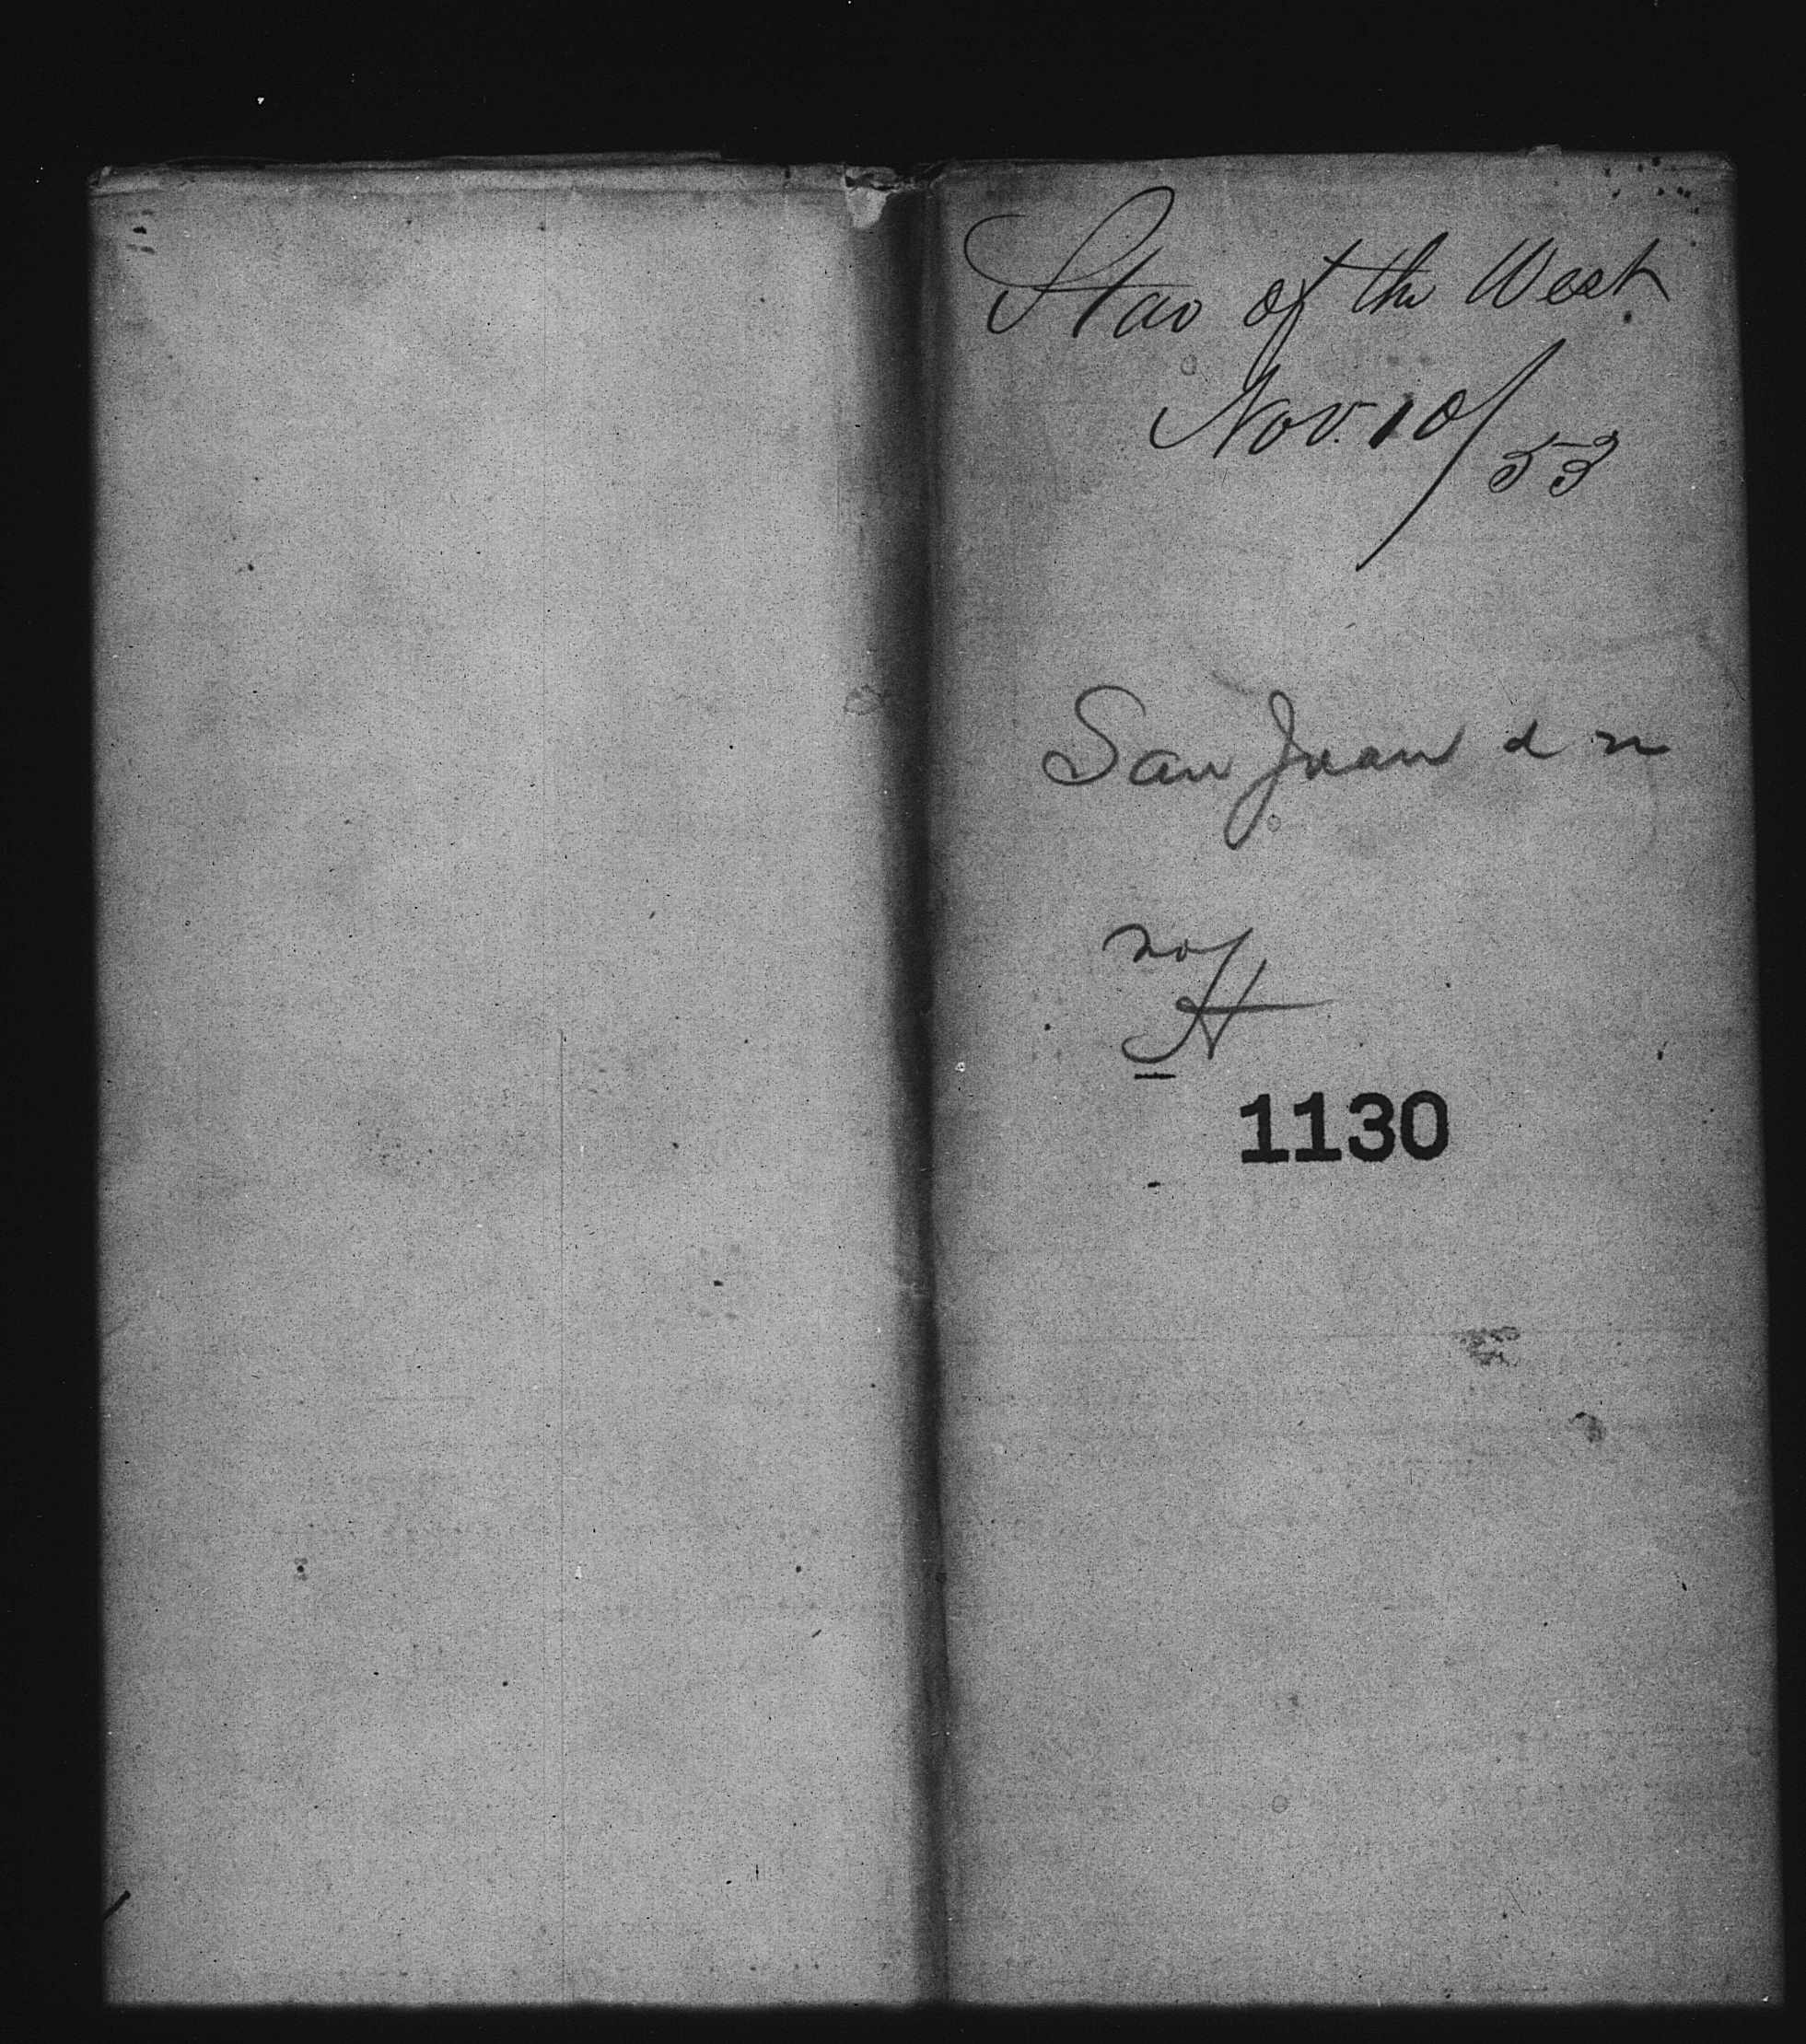 Star of the West
Nov. 10/53
San Juan d n
no/
H
1130